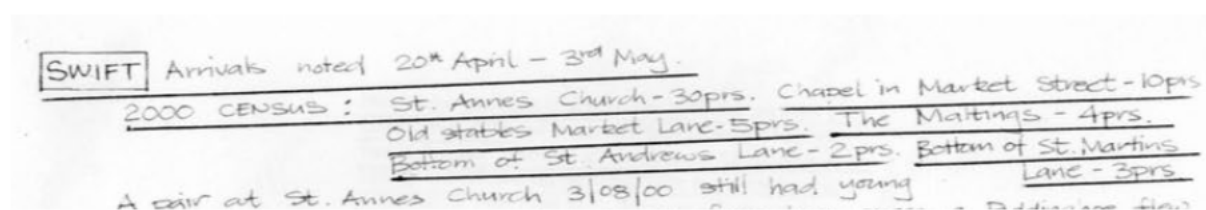 SWIFT Arrivals noted 20th April - 3rd May.
2000 CENSUS : St. Annes Church - 30prs. Chapel in Market Street - 10prs
Old stables Market Lane - 5prs. The Maltings - 4prs.
Bottom of St. Andrews Lane - 2prs. Bottom of St. Martins
Lane - 3prs
A pair at St. Annes Church 3/08/00 still had young